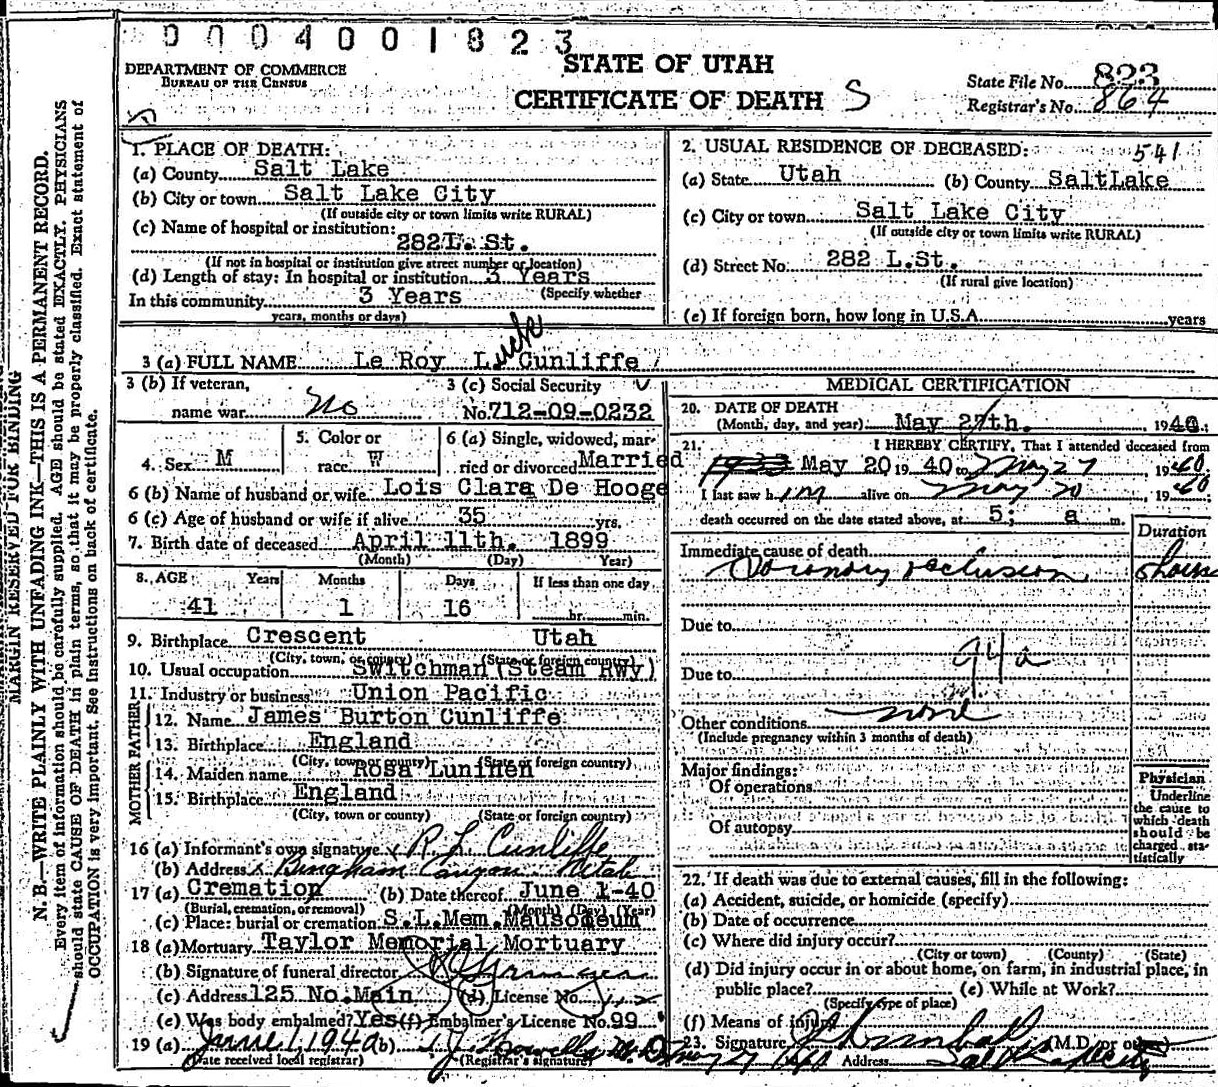 0004001823
DEPARTMENT OF COMMERCE
BUREAU OF THE CENSUS
STATE OF UTAH
CERTIFICATE OF DEATH S
State File No. 823
Registrar's No. 864
MARGIN RESERVED FOR BINDING
N. B.—WRITE PLAINLY WITH UNFADING INK—THIS IS A PERMANENT RECORD.
Every item of information should be carefully supplied. AGE should be stated EXACTLY. PHYSICIANS
should state CAUSE OF DEATH in plain terms, so that it may be properly classified. Exact statement of
OCCUPATION is very important. See instructions on back of certificate.
1. PLACE OF DEATH:
(a) County Salt Lake
(b) City or town Salt Lake City
(If outside city or town limits write RURAL)
(c) Name of hospital or institution:
282 L. St.
(If not in hospital or institution give street number or location)
(d) Length of stay: In hospital or institution 3 Years
(Specify whether
In this community 3 Years
years, months or days)
2. USUAL RESIDENCE OF DECEASED: 541
(a) State Utah (b) County SaltLake
(c) City or town Salt Lake City
(If outside city or town limits write RURAL)
(d) Street No. 282 L.St.
(If rural give location)
(e) If foreign born, how long in U.S.A. years
3 (a) FULL NAME Le Roy Luck Cunliffe
3 (b) If veteran,
name war No
3 (c) Social Security
No. 712-09-0232
4. Sex M
5. Color or
race W
6 (a) Single, widowed, mar-
ried or divorced Married
6 (b) Name of husband or wife Lois Clara De Hooge
6 (c) Age of husband or wife if alive 35 yrs.
7. Birth date of deceased April 11th. 1899
(Month) (Day) Year)
8. AGE: Years Months Days If less than one day
41 1 16 hr. min.
9. Birthplace Crescent Utah
(City, town, or county) (State or foreign country)
10. Usual occupation Switchman (Steam Rwy)
11. Industry or business Union Pacific
FATHER
12. Name James Burton Cunliffe
13. Birthplace England
(City, town or county) (State or foreign country)
MOTHER
14. Maiden name Rosa Luninen
15. Birthplace England
(City, town or county) (State or foreign country)
16 (a) Informant's own signature x R. L. Cunliffe
(b) Address x Bingham Canyon Utah
17 (a) Cremation (b) Date thereof June 1-40
(Burial, cremation, or removal) (Month) (Day) (Year)
(c) Place: burial or cremation S.L.Mem.Mausoleum
18 (a) Mortuary Taylor Memorial Mortuary
(b) Signature of funeral director
(c) Address 125 No.Main (d) License No. 112
(e) Was body embalmed? Yes (f) Embalmer's License No. 99
19 (a) June 1, 1940 (b)
(Date received local registrar) (Registrar's signature)
MEDICAL CERTIFICATION
20. DATE OF DEATH
(Month, day, and year) May 27th. 1940
21. I HEREBY CERTIFY, That I attended deceased from
May 20 1940 to May 27 1940
I last saw him alive on May 20 1940
death occurred on the date stated above, at 5; a m.
Duration
Immediate cause of death
Coronary occlusion hours
Due to
94a
Due to
Other conditions none
(Include pregnancy within 3 months of death)
Major findings:
Of operations
Of autopsy
Physician
Underline
the cause to
which death
should be
charged sta-
tistically
22. If death was due to external causes, fill in the following:
(a) Accident, suicide, or homicide (specify)
(b) Date of occurrence
(c) Where did injury occur?
(City or town) (County) (State)
(d) Did injury occur in or about home, on farm, in industrial place, in
public place? (e) While at Work?
(Specify type of place)
(f) Means of injury
23. Signature (M.D. or other)
May 27 1940 Address Salt Lake City